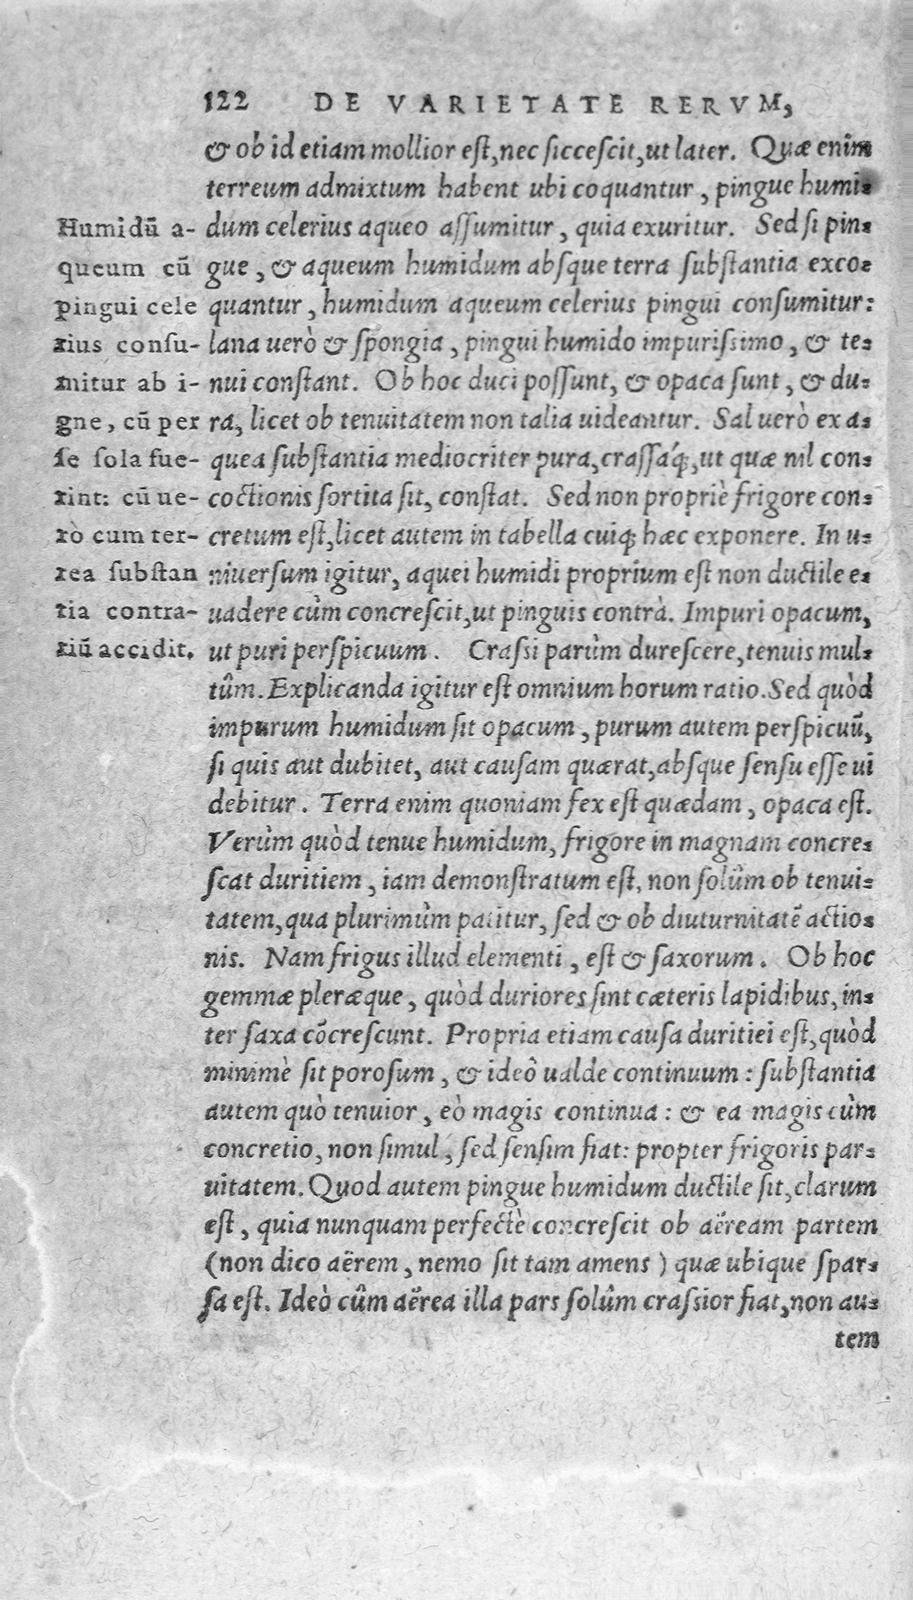 122 DE VARIETATE RERVM,
& ob id etiam mollior eſt, nec ſicceſcit, ut later. Quæ enim
terreum admixtum habent ubi coquantur, pingue humi-
dum celerius aqueo aſſumitur, quia exuritur. Sed ſi pin-
gue, & aqueum humidum abſque terra ſubſtantia exco-
quantur, humidum aqueum celerius pingui conſumitur:
lana uerò & ſpongia, pingui humido impuriſsimo, & te-
nui conſtant. Ob hoc duci poſſunt, & opaca ſunt, & du-
ra, licet ob tenuitatem non talia uideantur. Sal uerò ex a-
quea ſubſtantia mediocriter pura, craſſaq́;, ut quæ nil con-
coctionis ſortita ſit, conſtat. Sed non propriè frigore con-
cretum eſt, licet autem in tabella cuiq; hæc exponere. In u-
niuerſum igitur, aquei humidi proprium eſt non ductile e-
uadere cùm concreſcit, ut pinguis contrà. Impuri opacum,
ut puri perſpicuum. Craſsi parùm dureſcere, tenuis mul-
tûm. Explicanda igitur eſt omnium horum ratio. Sed quòd
impurum humidum ſit opacum, purum autem perſpicuũ,
ſi quis aut dubitet, aut cauſam quærat, abſque ſenſu eſſe ui
debitur. Terra enim quoniam fex eſt quædam, opaca eſt.
Verùm quòd tenue humidum, frigore in magnam concre-
ſcat duritiem, iam demonſtratum eſt, non ſolûm ob tenui-
tatem, qua plurimùm patitur, ſed & ob diuturnitatẽ actio-
nis. Nam frigus illud elementi, eſt & ſaxorum. Ob hoc
gemmæ pleræque, quòd duriores ſint cæteris lapidibus, in-
ter ſaxa cõcreſcunt. Propria etiam cauſa duritiei eſt, quòd
minimè ſit poroſum, & ideô ualde continuum: ſubſtantia
autem quò tenuior, eò magis continua: & ea magis cùm
concretio, non ſimul, ſed ſenſim fiat: propter frigoris par-
uitatem. Quod autem pingue humidum ductile ſit, clarum
eſt, quia nunquam perfectè concreſcit ob aëream partem
(non dico aërem, nemo ſit tam amens) quæ ubique ſpar-
ſa eſt. Ideò cûm aërea illa pars ſolûm craſsior fiat, non au-
tem
Humidũ a-
queum cũ
pingui cele
rius conſu-
mitur ab i-
gne, cũ per
ſe ſola fue-
rint: cũ ue-
rò cum ter-
rea ſubſtan
tia contra-
riũ accidit.